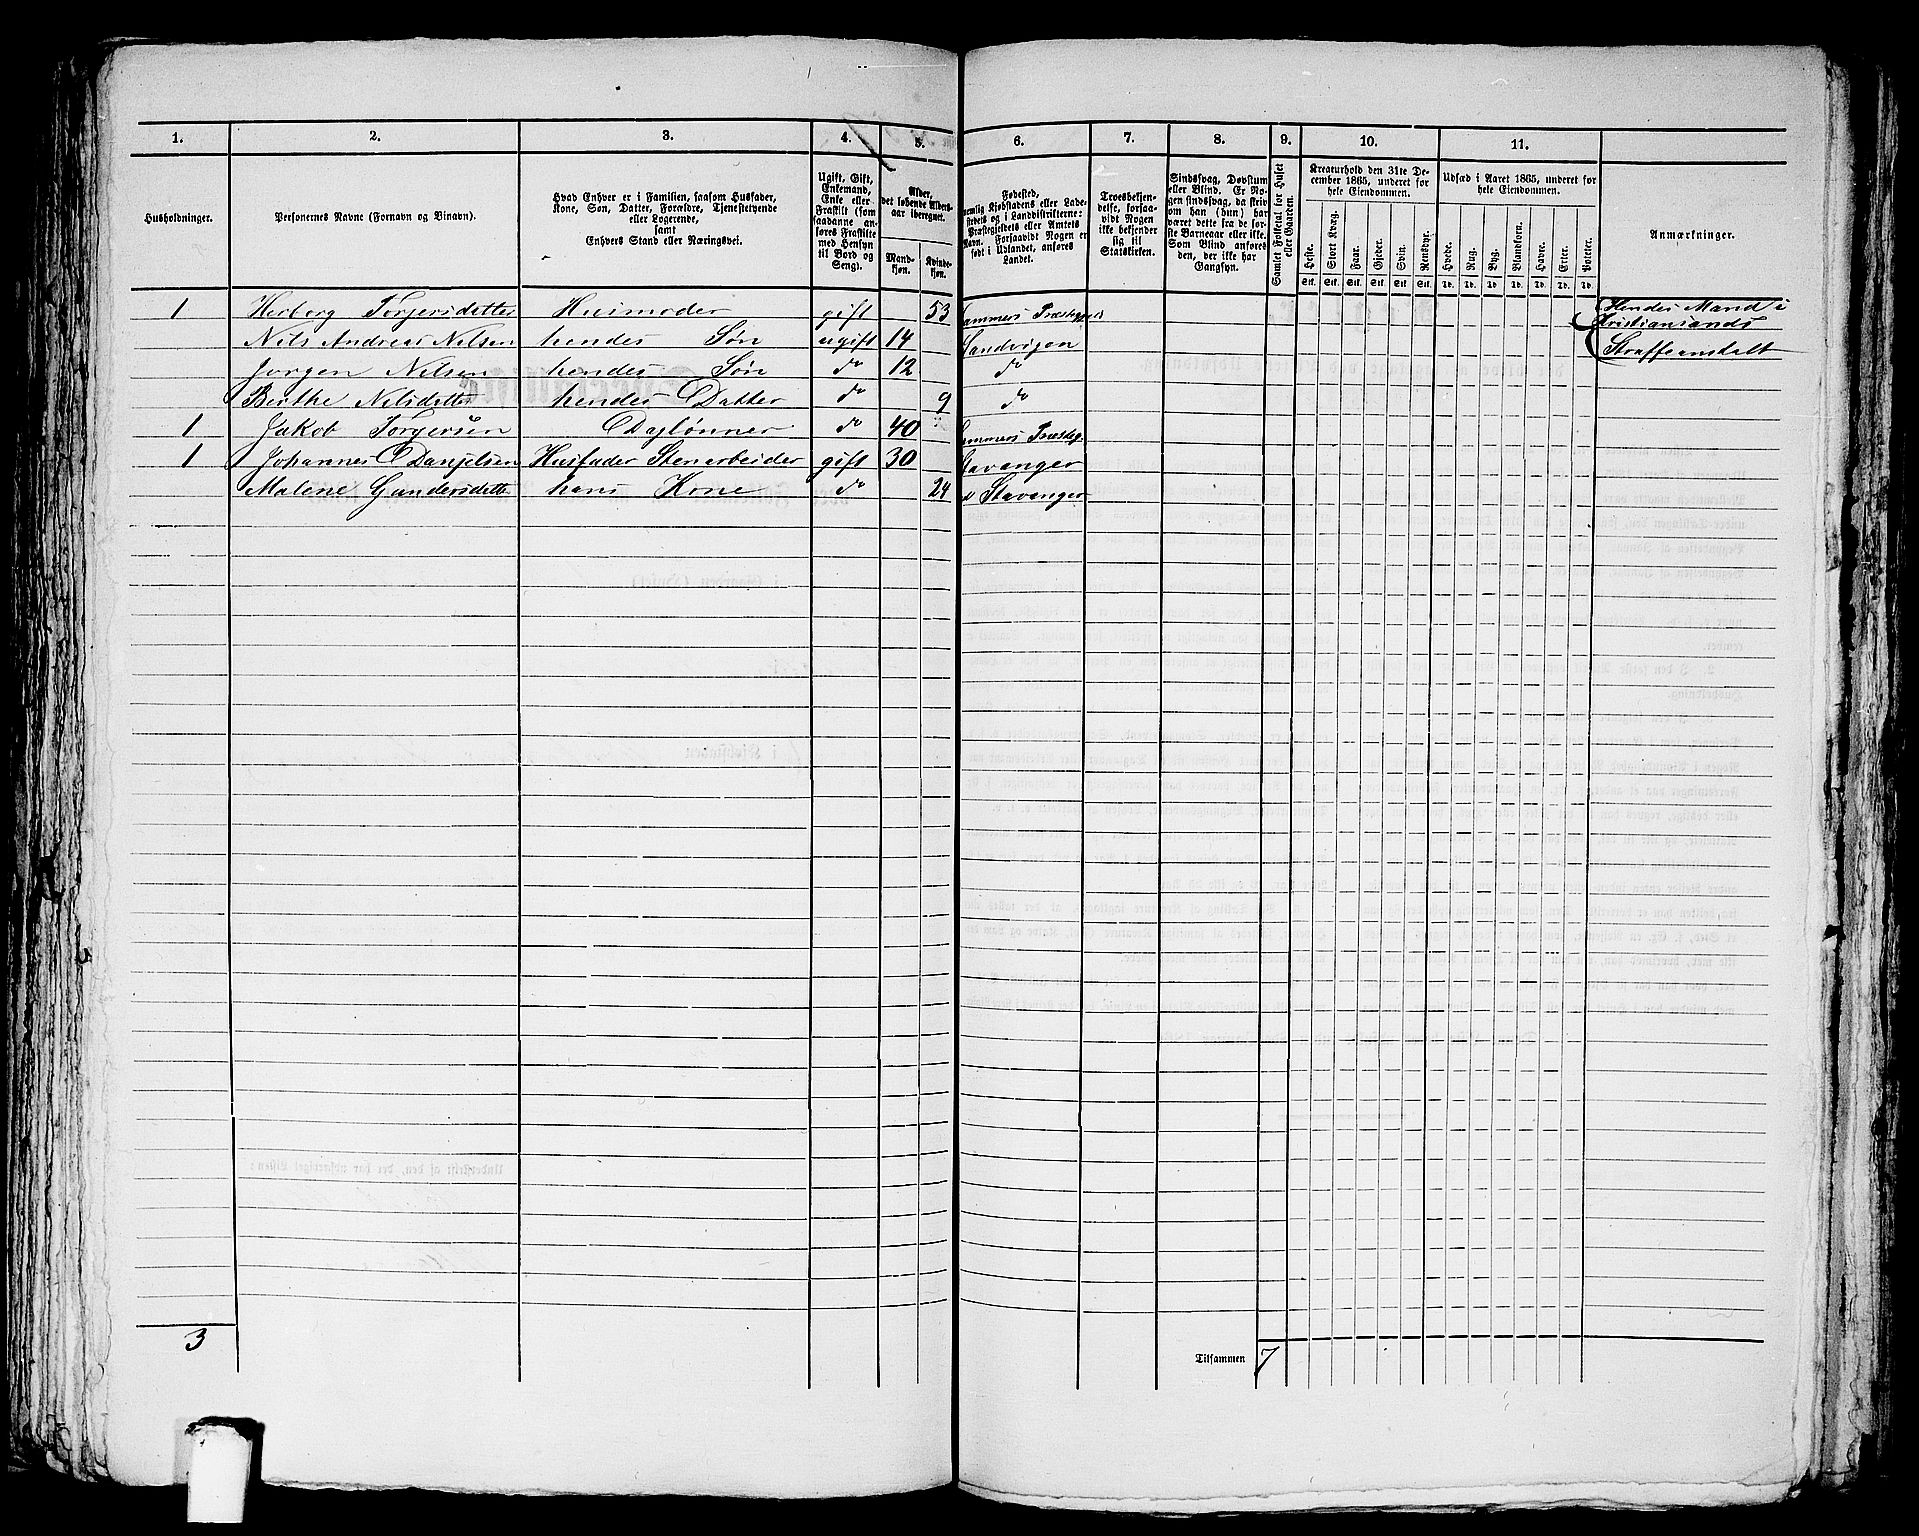 1. 2. 3. 4. 5. 6. 7. 8. 9. 10. 11.
Husholdninger.
Personernes Navne (Fornavn og Tilnavn).
Hvad Enhver er i Familien, saasom Husfader,
Kone, Søn, Datter, Forældre, Tjenestetyende
eller Logerende,
samt
Enhvers Stand eller Næringsvei.
Ugift, Gift,
Enkemand,
Enke eller
Fraskilt (som
saadanne an-
føres Fraskilte
med Hensyn
til Bord og
Seng).
Alder,
det løbende Alders-
aar iberegnet.
Mand-
kjøn.
Kvinde-
kjøn.
Fødested,
nemlig Kjøbstadens eller Lade-
stedets og i Landdistrikterne:
Præstegjeldets eller Amtets
Navn. Forsaavidt Nogen er
født i Udlandet, anføres
Landet.
Troesbekjen-
delse, forsaa-
vidt Nogen
ikke bekjender
sig til
Statskirken.
Sindssvag, Døvstum
eller Blind. Er No-
gen sindssvag, da skriv
om han (hun) har
været dette fra de før-
ste Barneaar eller ikke.
Som Blind anføres
den, der ikke har
Gangsyn.
Samlet Folketal for Huset
eller Gaarden.
Kreaturhold den 31te De-
cember 1865, underet for
hele Eiendommen.
Heste. Stort Kvæg. Faar. Gjeder. Svin. Rensdyr.
Stk. Stk. Stk. Stk. Stk. Stk.
Udsæd i Aaret 1865, underet for
hele Eiendommen.
Hvede. Rug. Byg. Blandkorn. Havre. Erter. Poteter.
Td. Td. Td. Td. Td. Td. Td.
Anmærkninger.
1 Herborg Torjersdatter Huusmoder gift 53 Hammers Præstegjeld Hendes Mand i
Kristiansands
Nils Andreas Nilsen hendes Søn ugift 14 Sandvigen Straffeanstalt
Jørgen Nilsen hendes Søn do 12 do
Berthe Nilsdatter hendes Datter do 9 do
1 Jakob Torgersen Daglønner do 40 Hammers Præsteg.
1 Johannes Danielsen Husfader Stenarbeider gift 30 Stavanger
Malene Gundersdatt hans Kone do 24 Stavanger
3
Tilsammen 7